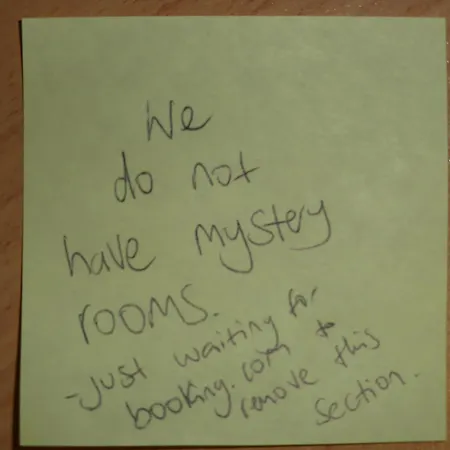 We
do not
have mystery
rooms.
-Just waiting for
booking.com to
remove this
section.